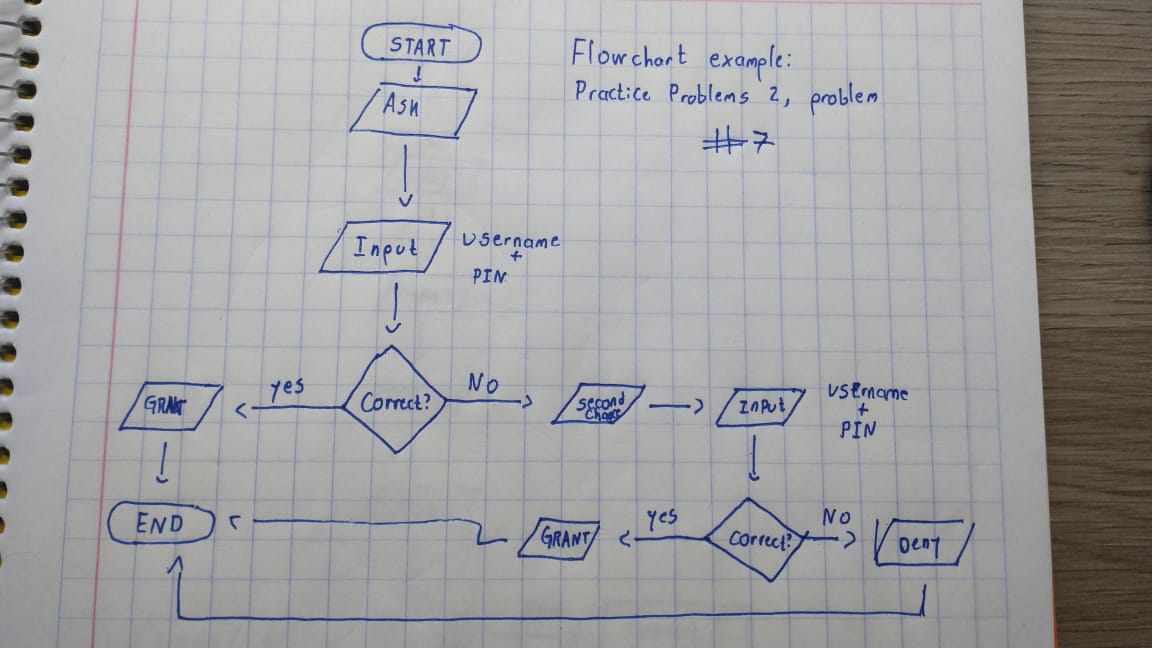 START
Flowchart example:
Practice Problems 2, problem
#7
Ask
Input
Username
+
PIN
Correct?
yes
NO
GRANT
second
Input
Username
+
PIN
END
GRANT
yes
Correct?
NO
Deny